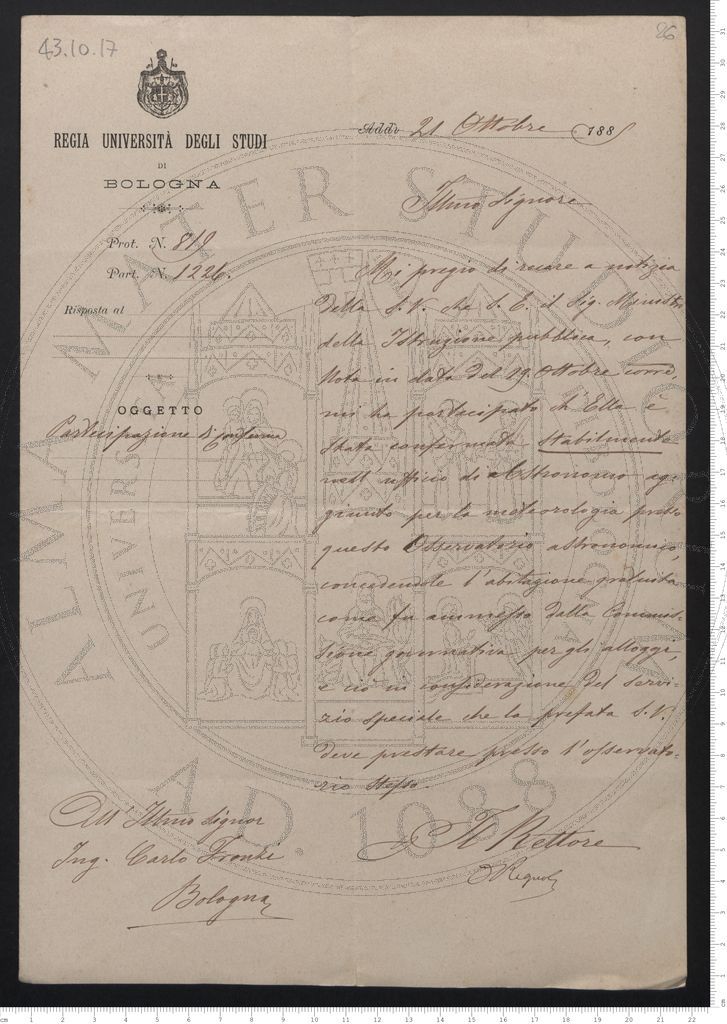 43.10.17
26
REGIA UNIVERSITÀ DEGLI STUDI
DI
BOLOGNA
Addì 21 Ottobre 1885
Prot. N. 819
Part. N. 1226.
Risposta al
OGGETTO
Partecipazione di conferma
Illmo Signore
Mi pregio di recare a notizia
della S. V. che S. E. il Sig. Ministro
della Istruzione pubblica, con
Nota in data del 19 Ottobre corre
mi ha partecipato ch'Ella è
stata confermata stabilmente
nell'ufficio di Astronomo ag-
giunto per la meteorologia presso
questo Osservatorio astronomico,
concedendole l'abitazione gratuita
come fu ammesso dalla Commis-
sione governativa per gli alloggi,
e ciò in considerazione del servi-
zio speciale che la prefata S. V.
deve prestare presso l'osservato-
rio stesso.
Il Rettore
All'Illmo Signor
Ing. Carlo
Bologna
ALMA MATER STUDIORUM
A.D. 1088